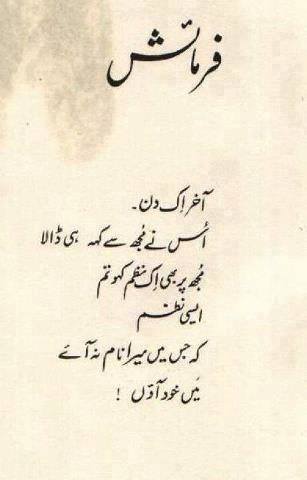 فرمائش
آخر اِک دن۔
اُس نے مُجھ سے کہہ ہی ڈالا
مُجھ پر بھی اِک نظم کہو تم
ایسی نظم
کہ جس میں میرا نام نہ آئے
مَیں خود آؤں !